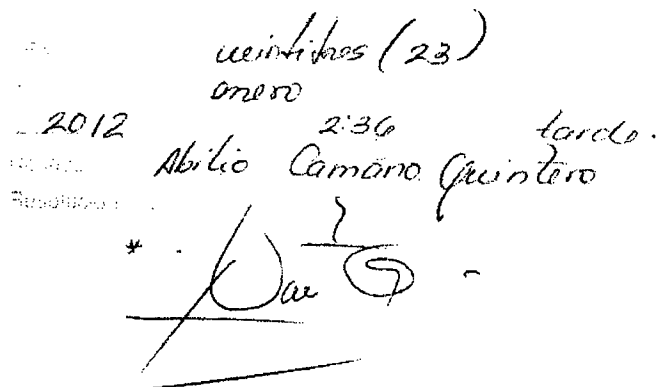 veintitres (23)
enero
2012 2:36 tarde.
Abilio Camaño Quintero